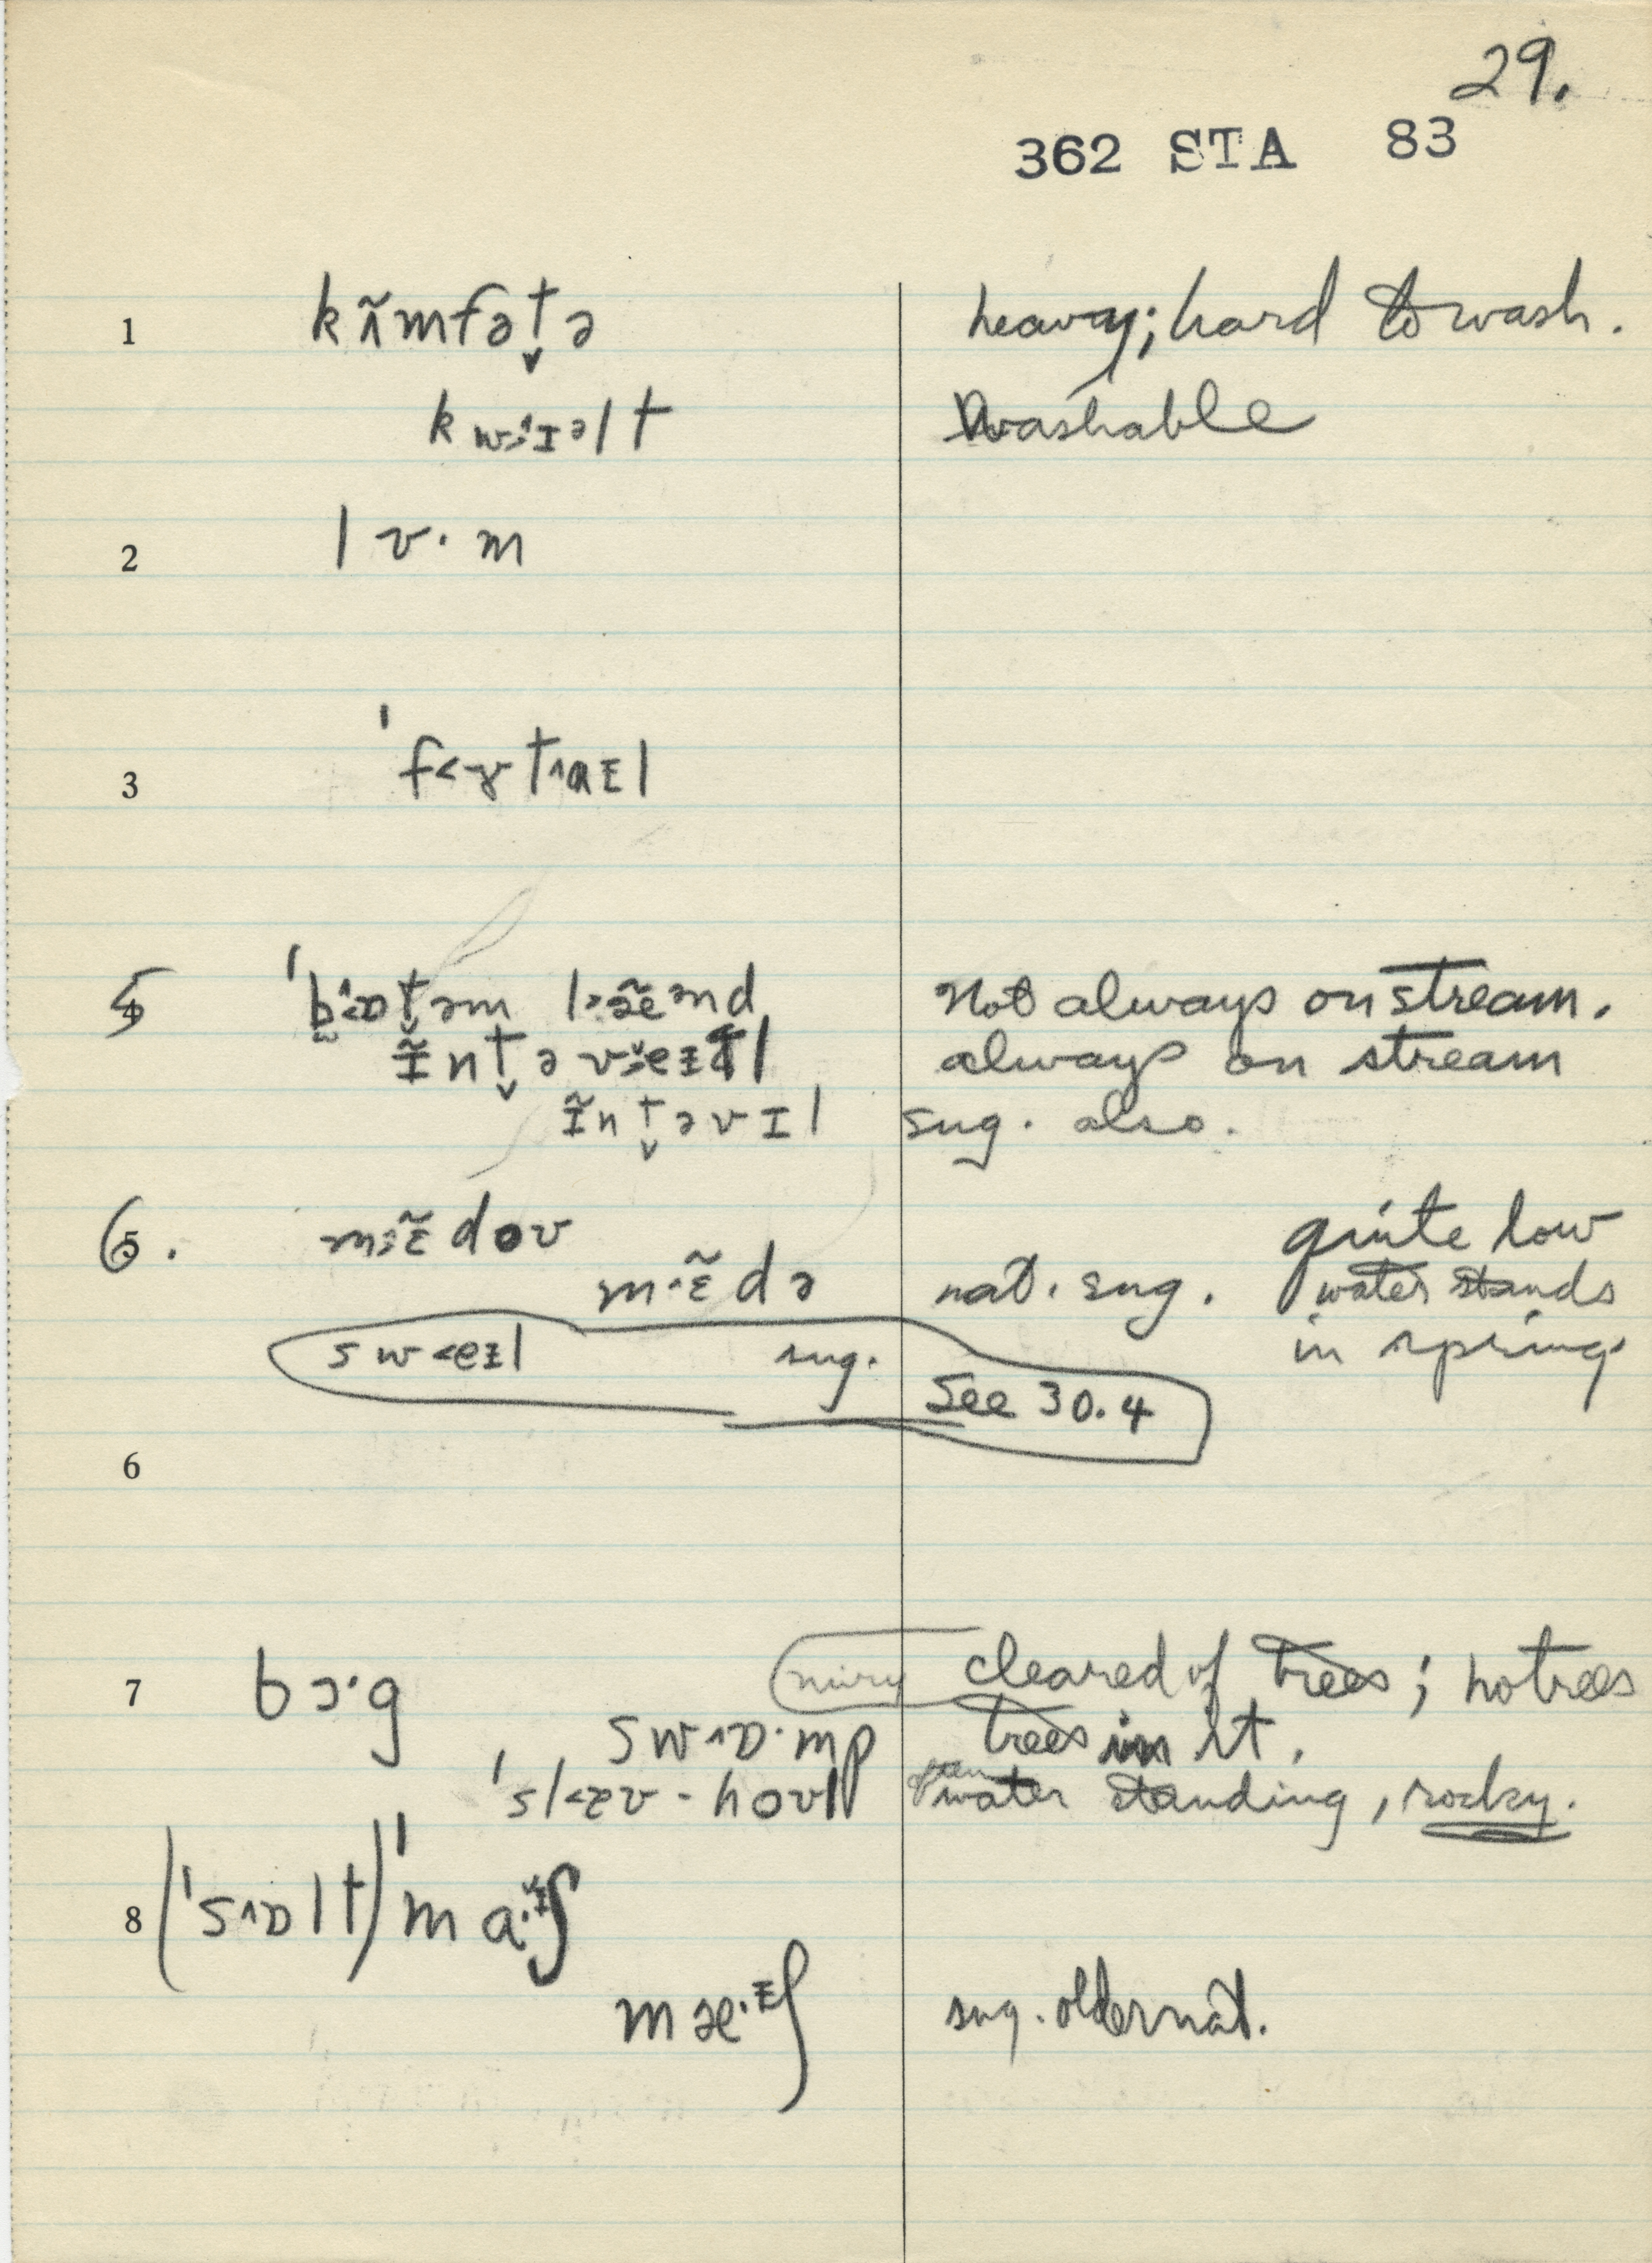 29.
362 STA 83
1 kʌ̃mfət̬ə heavy; hard to wash.
kw>ɪəlt washable
2 lʊ·m
3 ˈf<ɤt^aɪl
5 ˈb̥<ɒt̬əm l>æ̃ẽənd Not always on stream.
ɪ̃nt̬əv>eɪl always on stream
ɪ̃nt̬əvɪl sug. also.
6. m>ɛ̃doʊ quite low
m^ɛ̃də nat. sug. water stands
sw<eɪl sug. in spring.
See 30.4
6
7 bɔ·g miry cleared of trees; no trees
sw^ɒ·mp trees in it.
ˈsl<æʊ-hoʊl often water standing, rocky.
8 (ˈs^ɒlt)ˈma·ɪʃ
mæ·ɪʃ sug. older nat.